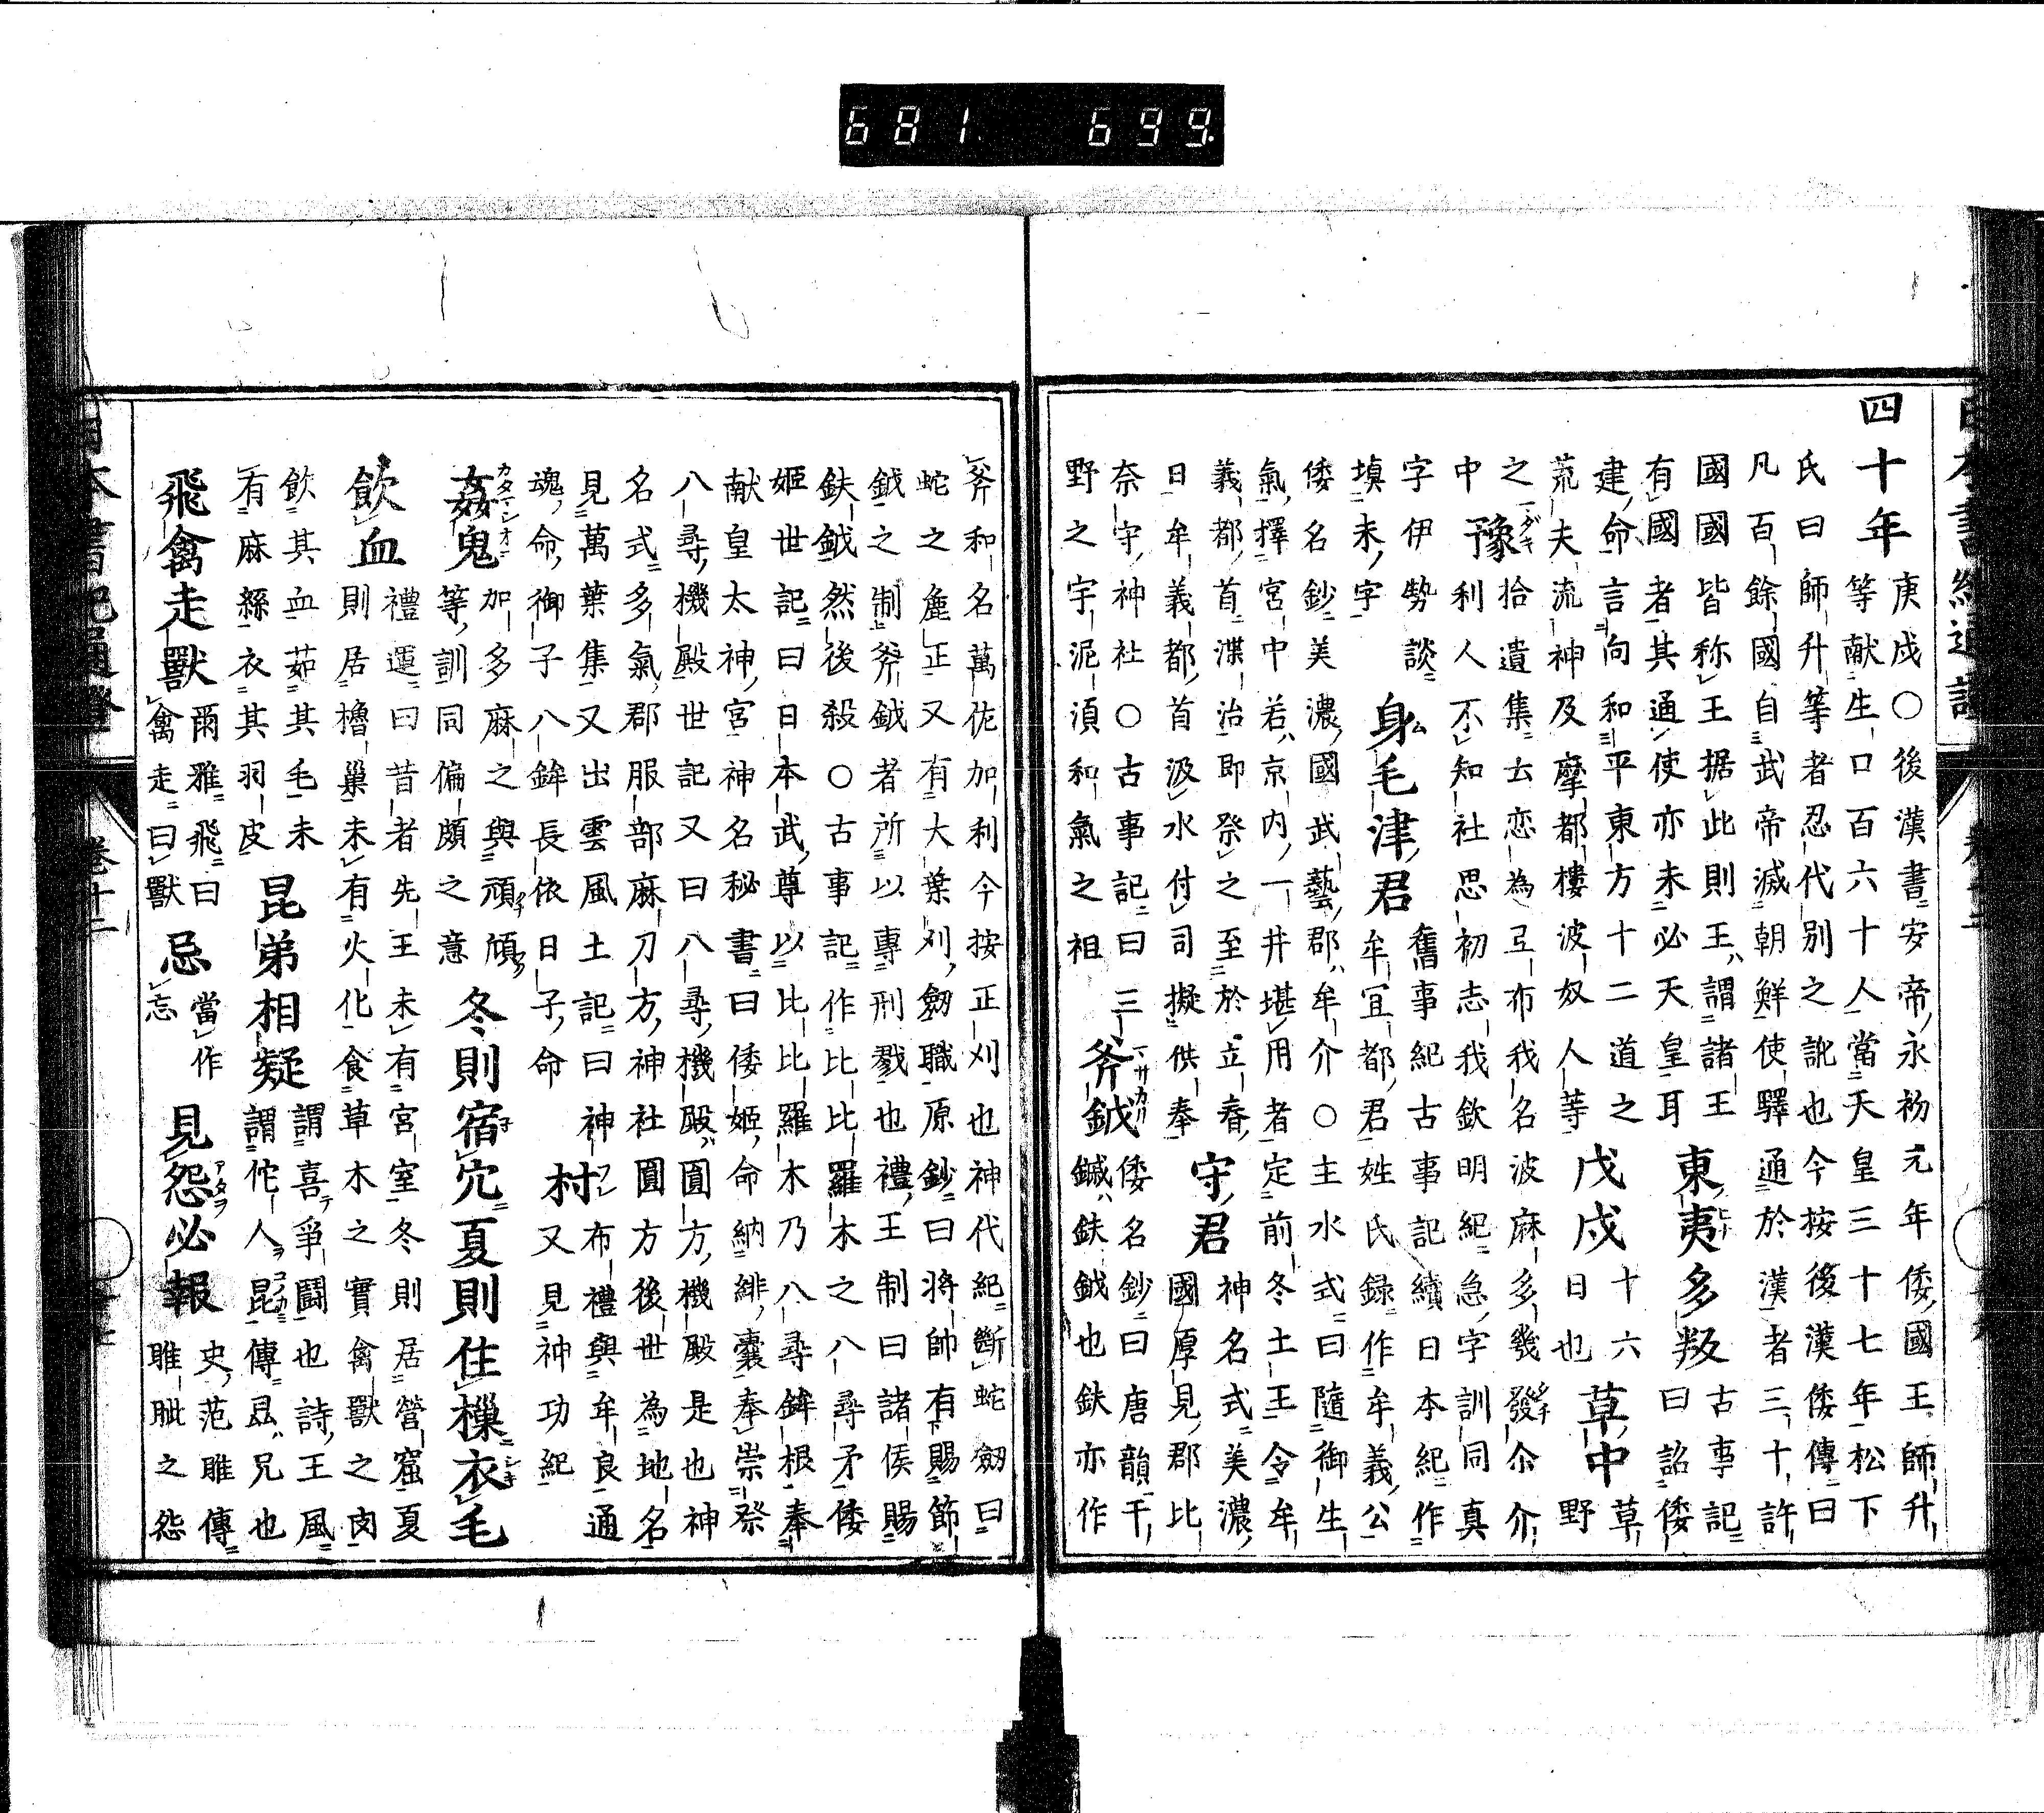 四十年 庚戌○後漢書安帝永初元年倭國王師升
等献生口百六十人當天皇三十七年松下
氏曰師升等者忍代別之訛也今按後漢倭傳曰
凡百餘國自武帝滅朝鮮使驛通於漢者三十許
國國皆称王据此則王謂諸王
有國者其通使亦未必天皇耳
東夷多叛 古事記
曰詔倭
建命言向和平東方十二道之
荒夫流神及摩都樓波奴人等
戊戌 十六
日也
草中 草
野
之
中
豫 拾遺集云恋為亙布我名波麻多幾發尒介
利人不知社思初志我欽明紀急字訓同真
字伊勢談
填未字
身毛津君 舊事紀古事記續日本紀作
牟宜都君姓氏録作牟義公
倭名鈔美濃國武藝郡牟介○主水式曰隨御生
氣擇宮中若京内一井堪用者定前冬土王令牟
義都首渫治即祭之至於立春
日牟義都首汲水付司擬供奉
守君 神名式美濃
國厚見郡比
奈守神社○古事記曰三
野之宇泥須和氣之祖
斧鉞 倭名鈔曰唐韻干
鍼鈇鉞也鈇亦作
斧和名萬佐加利今按正刈也神代紀斷蛇劔曰
蛇之麁正又有大葉刈劔職原鈔曰将帥有賜節
鉞之制斧鉞者所以專刑戮也禮王制曰諸侯賜
鈇鉞然後殺○古事記作比比羅木之八尋矛倭
姬世記曰日本武尊以比比羅木乃八尋鉾根奉
献皇太神宮神名秘書曰倭姬命納緋嚢奉崇祭
八尋機殿世記又曰八尋機殿圓方機殿是也神
名式多氣郡服部麻刀方神社圓方後世為地名
見萬葉集又出雲風土記曰神
魂命御子八鉾長依日子命
村 布禮與牟良通
又見神功紀
姦鬼 加多麻之與頑傾
等訓同偏頗之意
冬則宿穴夏則住樔衣毛
飲血 禮運曰昔者先王未有宮室冬則居營窟夏
則居櫓巢未有火化食草木之實禽獸之肉
飲其血茹其毛未
有麻絲衣其羽皮
昆弟相疑 謂喜爭鬪也詩王風
謂佗人昆傳昆兄也
飛禽走獸 爾雅飛曰
禽走曰獸
忌 當作
忘
見怨必報 史范雎傳
睢眦之怨
日本書紀通證
卷十二
681 699